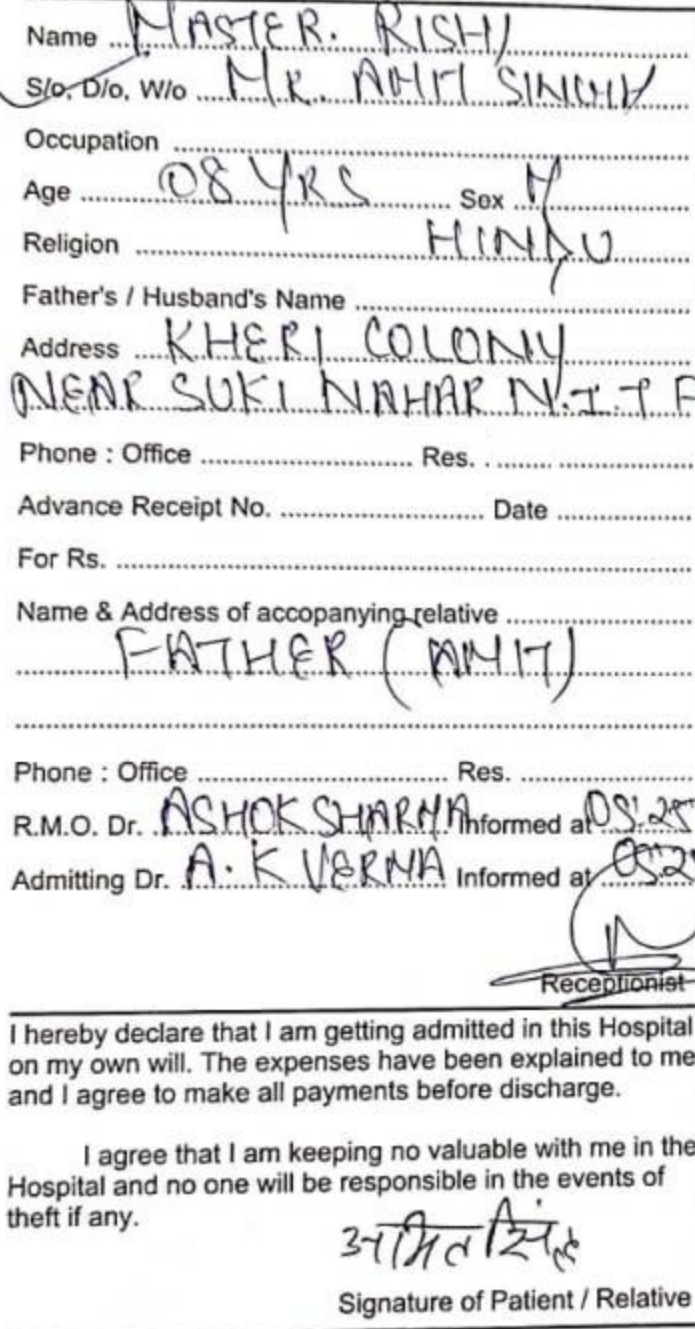 Name MASTER. RISHI
S/o, D/o, W/o MR. AMIT SINGH
Occupation
Age 08 YRS Sex M
Religion HINDU
Father's / Husband's Name
Address KHERI COLONY
NEAR SUKI NAHAR N.I.T F
Phone : Office Res. .
Advance Receipt No. Date
For Rs.
Name & Address of accopanying relative
FATHER (AMIT)
Phone : Office Res.
R.M.O. Dr. ASHOK SHARMA Informed at
Admitting Dr. A. K VERMA Informed at
Receptionist
I hereby declare that I am getting admitted in this Hospital
on my own will. The expenses have been explained to me
and I agree to make all payments before discharge.
I agree that I am keeping no valuable with me in the
Hospital and no one will be responsible in the events of
theft if any.
अमित सिंह
Signature of Patient / Relative